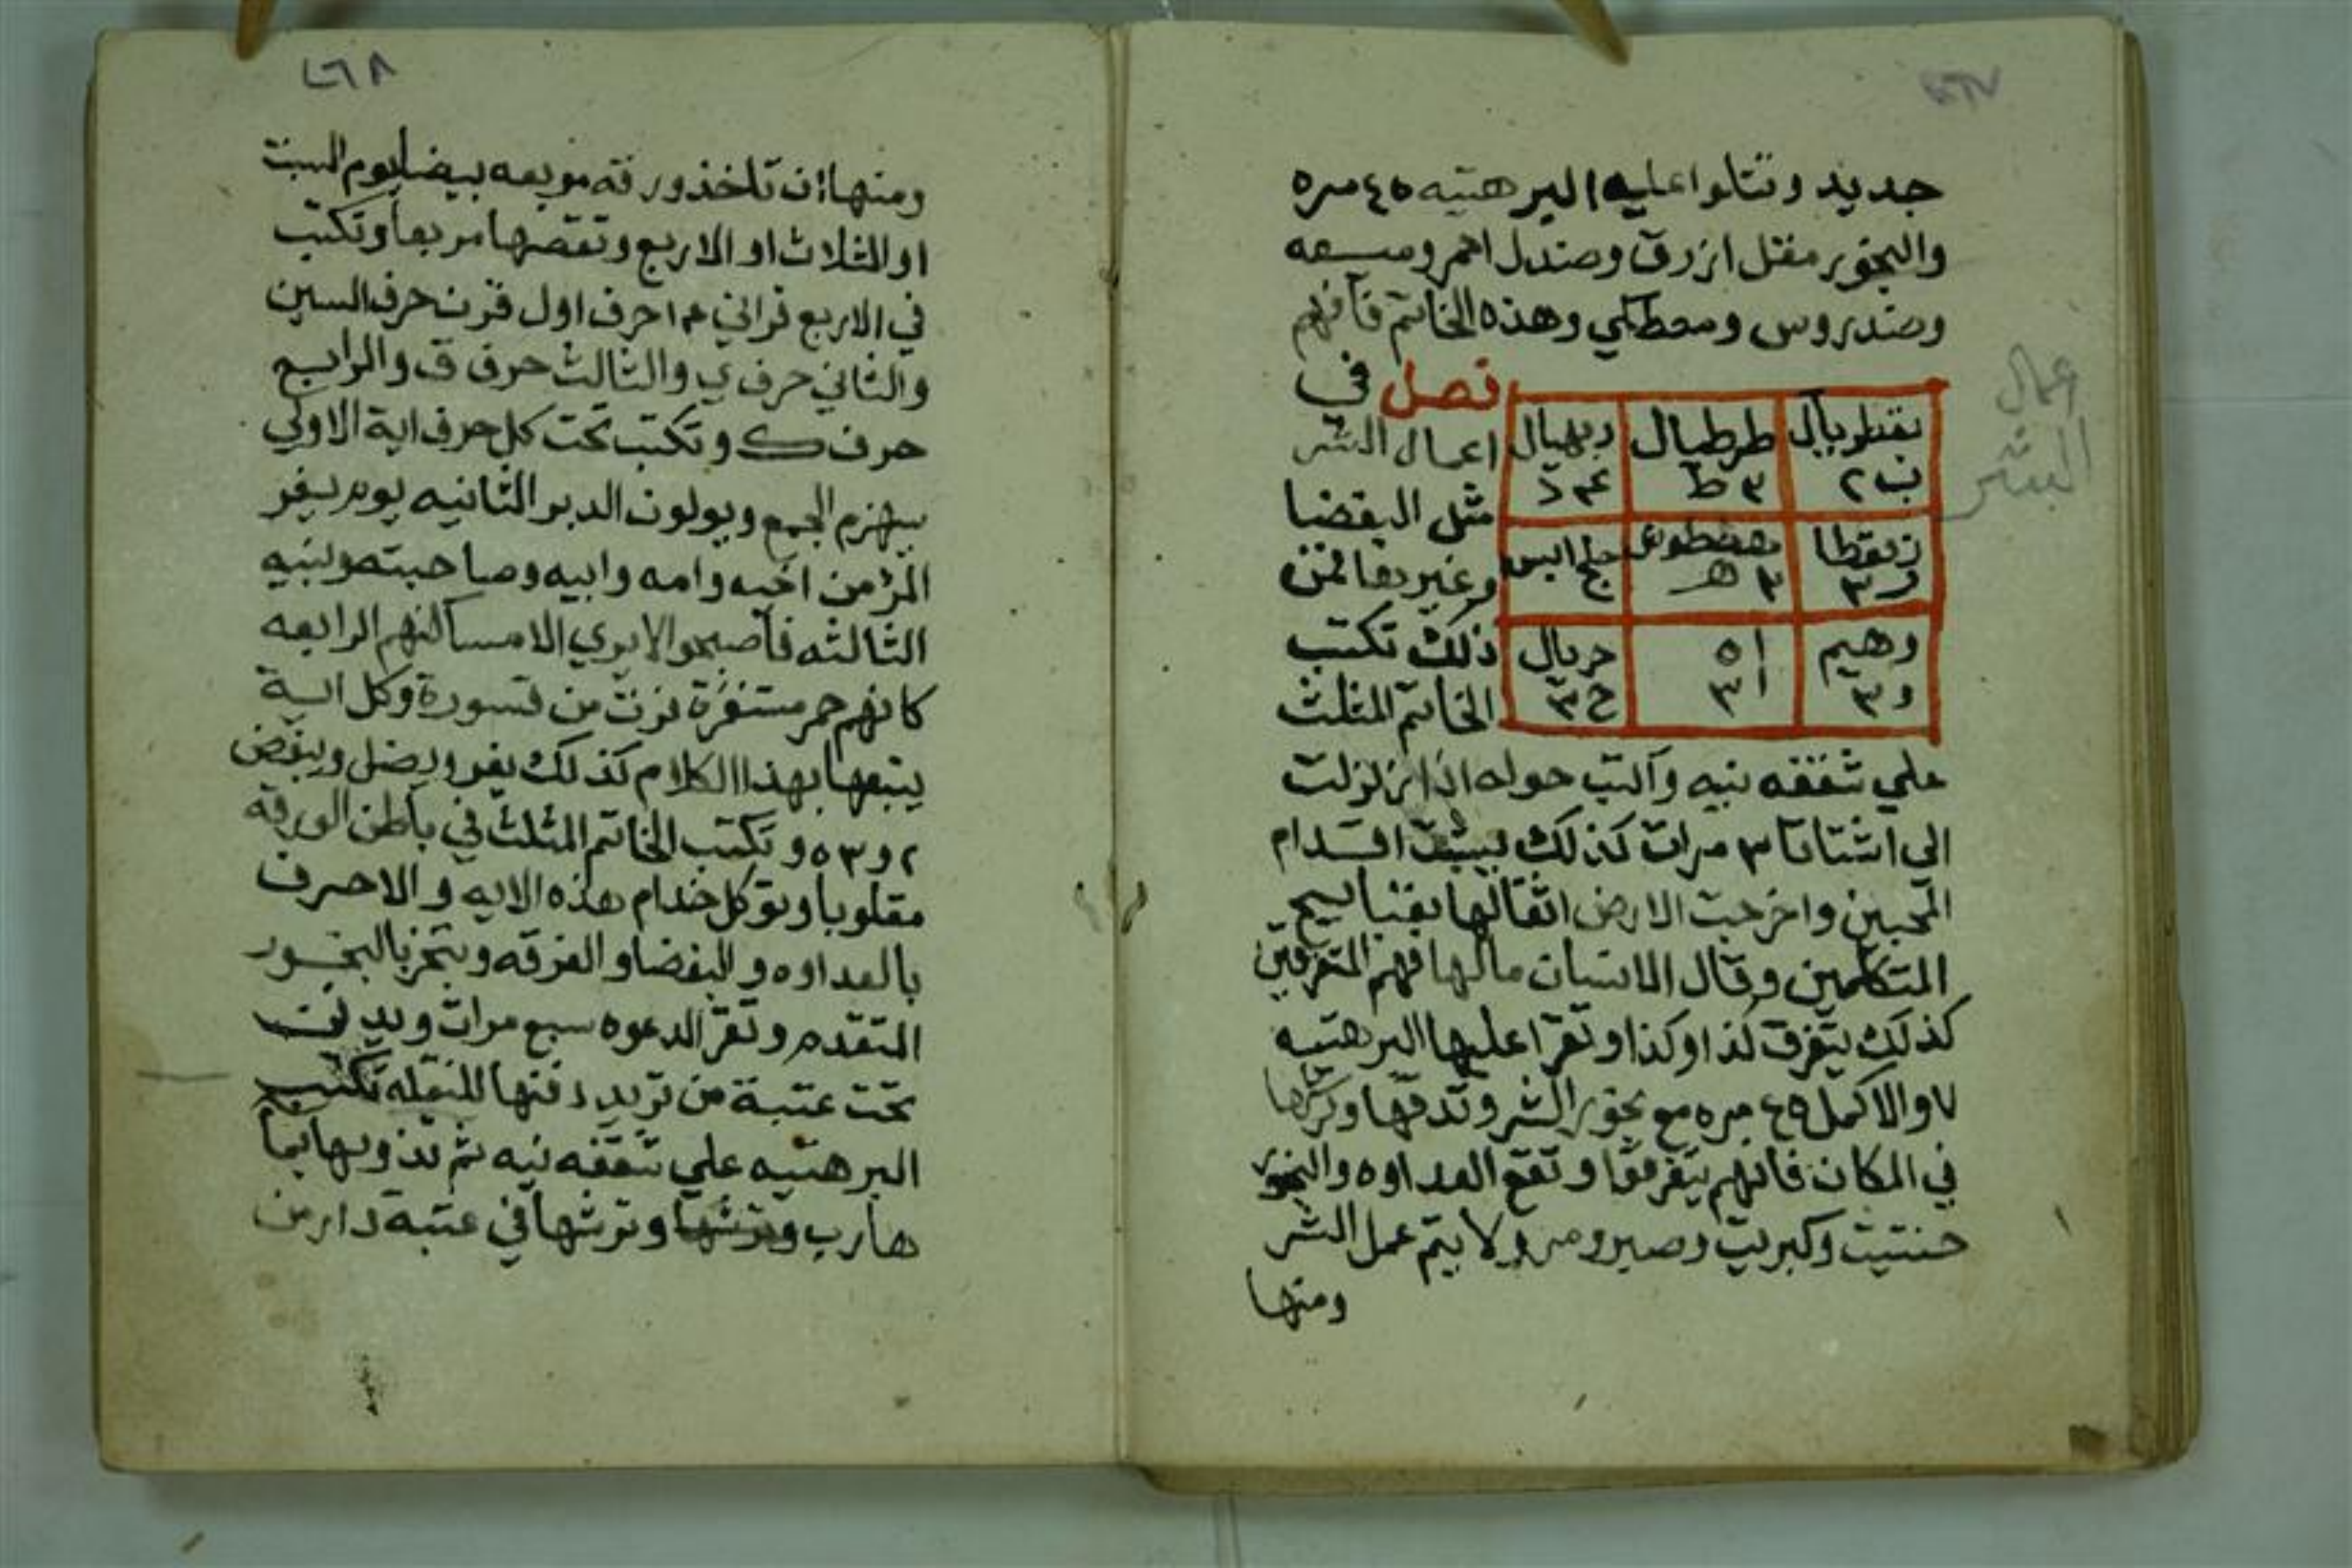 ٤٦٧
جديد وتتلوا عليه البرهتيه ٤٥ مره
والبخور مقل ازرق وصندل احمر وميعه
وصندروس ومصطكي وهذه الخاتم فافهم
فصل في
اعمال الشر
مثل البغضا
وغيرها فمن
ذلك تكتب
الخاتم المثلث
طرطيال
٣ ط
٣ هـ
وهيم
و ٣
ا ٥
ا ٣
حريال
ح ٣
اعمال
الشر
علي شقفه نيه وآكتب حوله اذا زلزلت
الى اشتاتا ٣ مرات كذلك يشتت اقدام
المحبين واخرجت الارض اثقالها بقبايح
المتكلمين وقال الانسان مالها فهم المتفرقين
كذلك يتفرق كذا وكذا وتقرا عليها البرهتيه
٧ والاكمل ٤٩ مره مع بخور الشر وتدقها وترشها
في المكان فانهم يتفرقوا وتقع العداوه والبخور
حنتيت وكبريت وصبر ومر ولا يتم عمل الشر
ومنها
٤٦٨
ومنها ان تاخذ ورقه مربعه بيضا يوم السبت
او الثلاث او الاربع وتقصها مربعا وتكتب
في الاربع قراني ٤ احرف اول قرن حرف السين
والثاني حرف ي والثالث حرف ق والرابع
حرف ك وتكتب تحت كل حرف اية الاولي
سيهزم الجمع ويولون الدبر الثانيه يوم يفر
المرء من اخيه وامه وابيه وصاحبته وبنيه
الثالثه فاصبحوا لايري الا مساكنهم الرابعه
كانهم حمر مستنفرة فرت من قسورة وكل اية
يتبعها بهذا الكلام كذلك يفر ويضل ويبغض
مقلوبا وتوكل خدام هذه الايه والاحرف
بالعداوه والبغضا والفرقه وتبخر بالبخور
المتقدم وتقرا الدعوه سبع مرات ويدفن
تحت عتبة من تريد دفنها للنقله تكتب
البرهتيه علي شقفه نيه ثم تذوبها بما
هارب وترشها وترشها في عتبة دار من